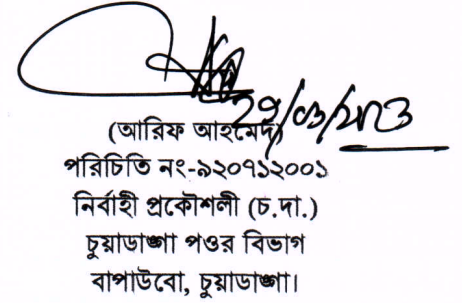 ২৭/০৩/২০২৩
(আরিফ আহমেদ)
পরিচিতি নং-৯২০৭১২০০১
নির্বাহী প্রকৌশলী (চ.দা.)
চুয়াডাঙ্গা পওর বিভাগ
বাপাউবো, চুয়াডাঙ্গা।